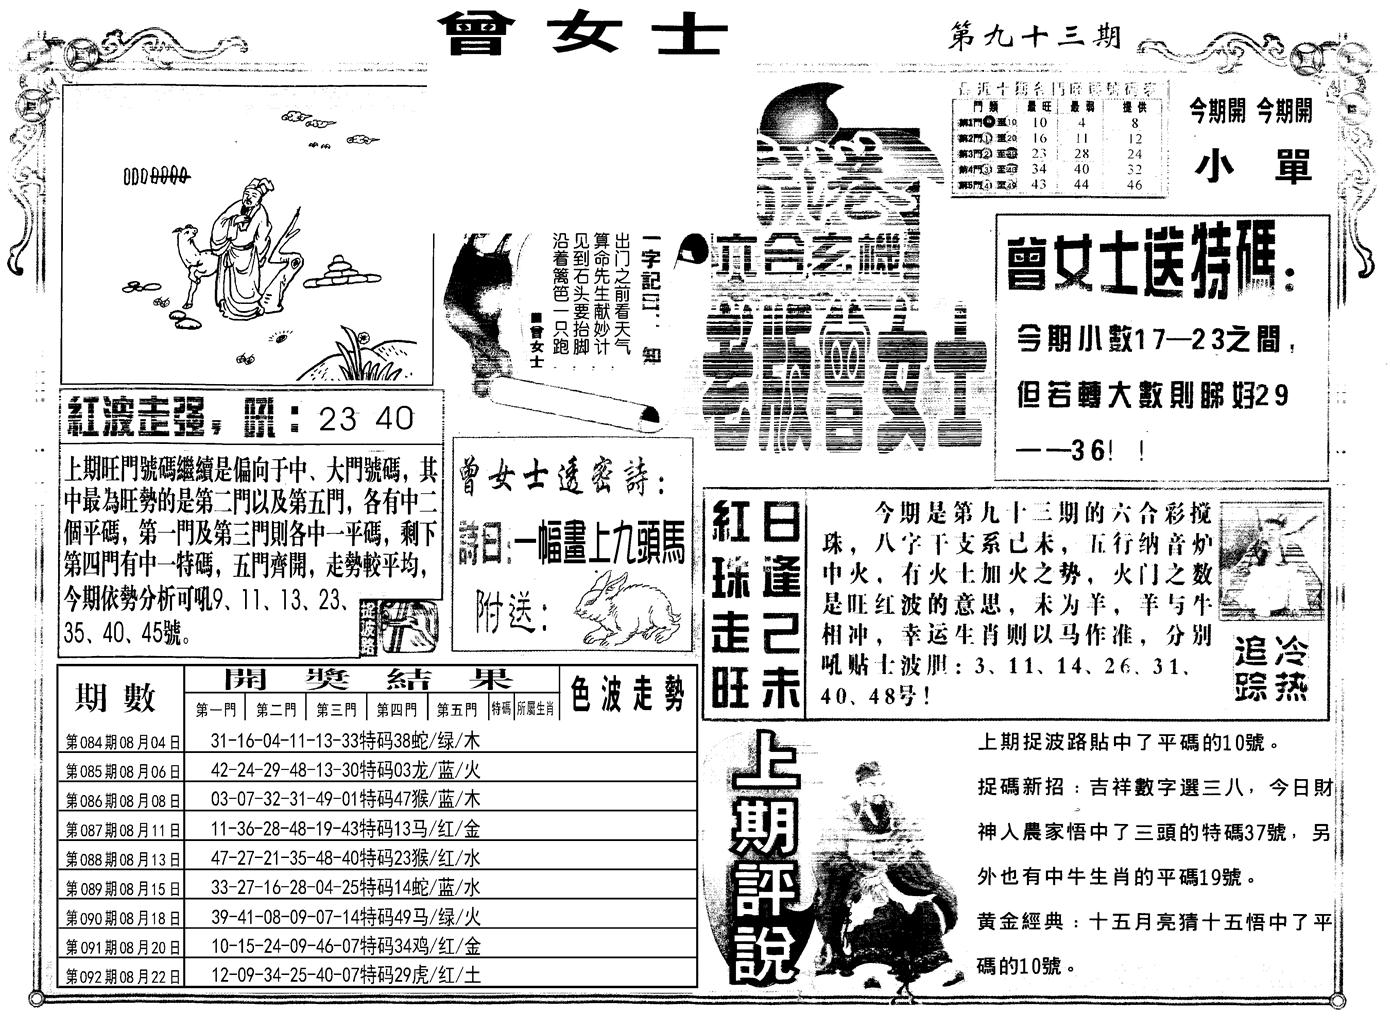 曾女士
第九十三期
門類 最旺 最弱 提供
第1門 至10 10 4 8
第2門 至20 16 11 12
第3門 至 23 28 24
第4門 至 34 40 32
第5門 41 至49 43 44 46
今期開 今期開
小 單
一字記曰：知
出门之前看天气
算命先生献妙计
见到石头要抬脚
沿着篱笆一只跑
曾女士
六合玄機
老版曾女士
曾女士送特碼：
今期小數17—23之間，
但若轉大數則睇好29
——36！！
紅波走强，吼：23 40
上期旺門號碼繼續是偏向于中、大門號碼，其
中最為旺勢的是第二門以及第五門，各有中二
個平碼，第一門及第三門則各中一平碼，剩下
第四門有中一特碼，五門齊開，走勢較平均，
今期依勢分析可吼9、11、13、23、
35、40、45號。
捉波路
曾女士透密詩：
詩曰：一幅畫上九頭馬
附送：
日逢己未
紅珠走旺
今期是第九十三期的六合彩搅
珠，八字干支系己未，五行纳音炉
中火，有火土加火之势，火门之数
是旺红波的意思，未为羊，羊与牛
相冲，幸运生肖则以马作准，分别
吼贴士波胆：3、11、14、26、31、
40、48号！
追踪
冷热
期數 開獎結果 色波走勢
第一門 第二門 第三門 第四門 第五門 特碼 所屬生肖
第084期08月04日 31-16-04-11-13-33特码38蛇/绿/木
第085期08月06日 42-24-29-48-13-30特码03龙/蓝/火
第086期08月08日 03-07-32-31-49-01特码47猴/蓝/木
第087期08月11日 11-36-28-48-19-43特码13马/红/金
第088期08月13日 47-27-21-35-48-40特码23猴/红/水
第089期08月15日 33-27-16-28-04-25特码14蛇/蓝/水
第090期08月18日 39-41-08-09-07-14特码49马/绿/火
第091期08月20日 10-15-24-09-46-07特码34鸡/红/金
第092期08月22日 12-09-34-25-40-07特码29虎/红/土
上期評說
上期捉波路貼中了平碼的10號。
捉碼新招：吉祥數字選三八，今日財
神人農家悟中了三頭的特碼37號，另
外也有中牛生肖的平碼19號。
黄金經典：十五月亮猜十五悟中了平
碼的10號。